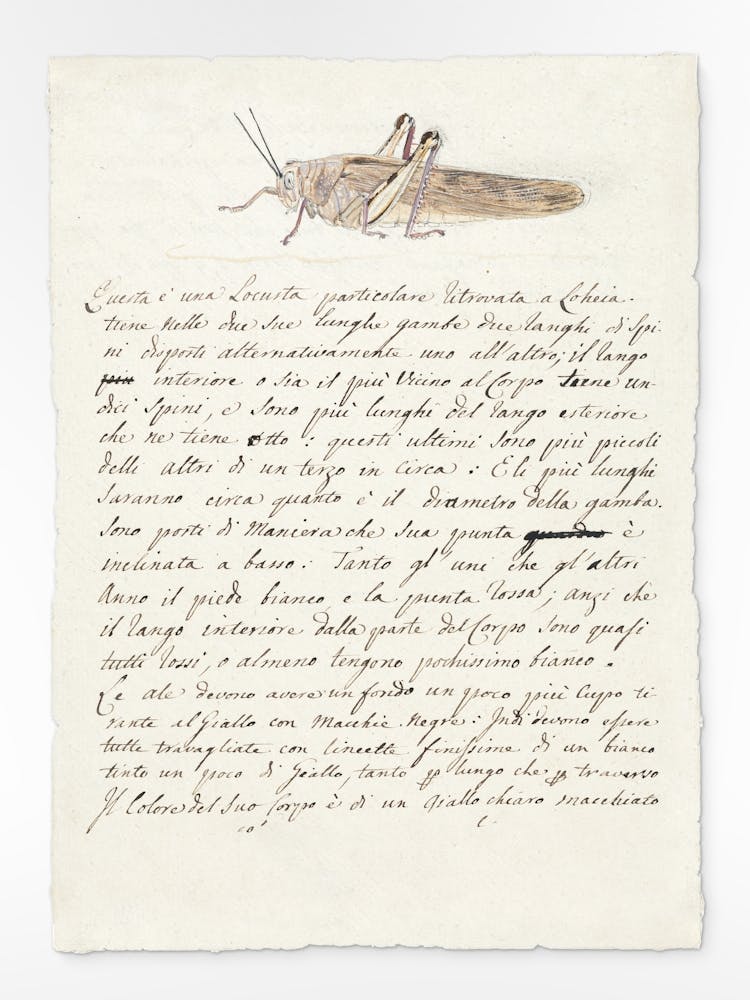 Questa è una Locusta particolare ritrovata a Loheia.
tiene nelle due sue lunghe gambe due ranghi di Spi-
ni disposti alternativamente uno all'altro; il rango
più interiore o sia il più Vicino al Corpo tiene un-
dici Spini, e sono più lunghi del rango esteriore
che ne tiene otto: questi ultimi sono più piccoli
delli altri di un terzo in circa: E li più lunghi
saranno circa quanto è il diametro della gamba.
Sono posti di Maniera che sua punta è
inclinata a basso: Tanto gl'uni che gl'altri
Anno il piede bianco e la punta rossa; anzi che
il rango interiore dalla parte del Corpo sono quasi
tutti rossi, o almeno tengono pochissimo bianco.
Le ale devono avere un fondo un poco più Cupo ti-
rante al Giallo con Macchie Negre: Indi devono essere
tutte travagliate con lineette finissime di un bianco
tinto un poco di Giallo, tanto p lungo che p traverso
Il Colore del suo Corpo è di un Giallo chiaro macchiato